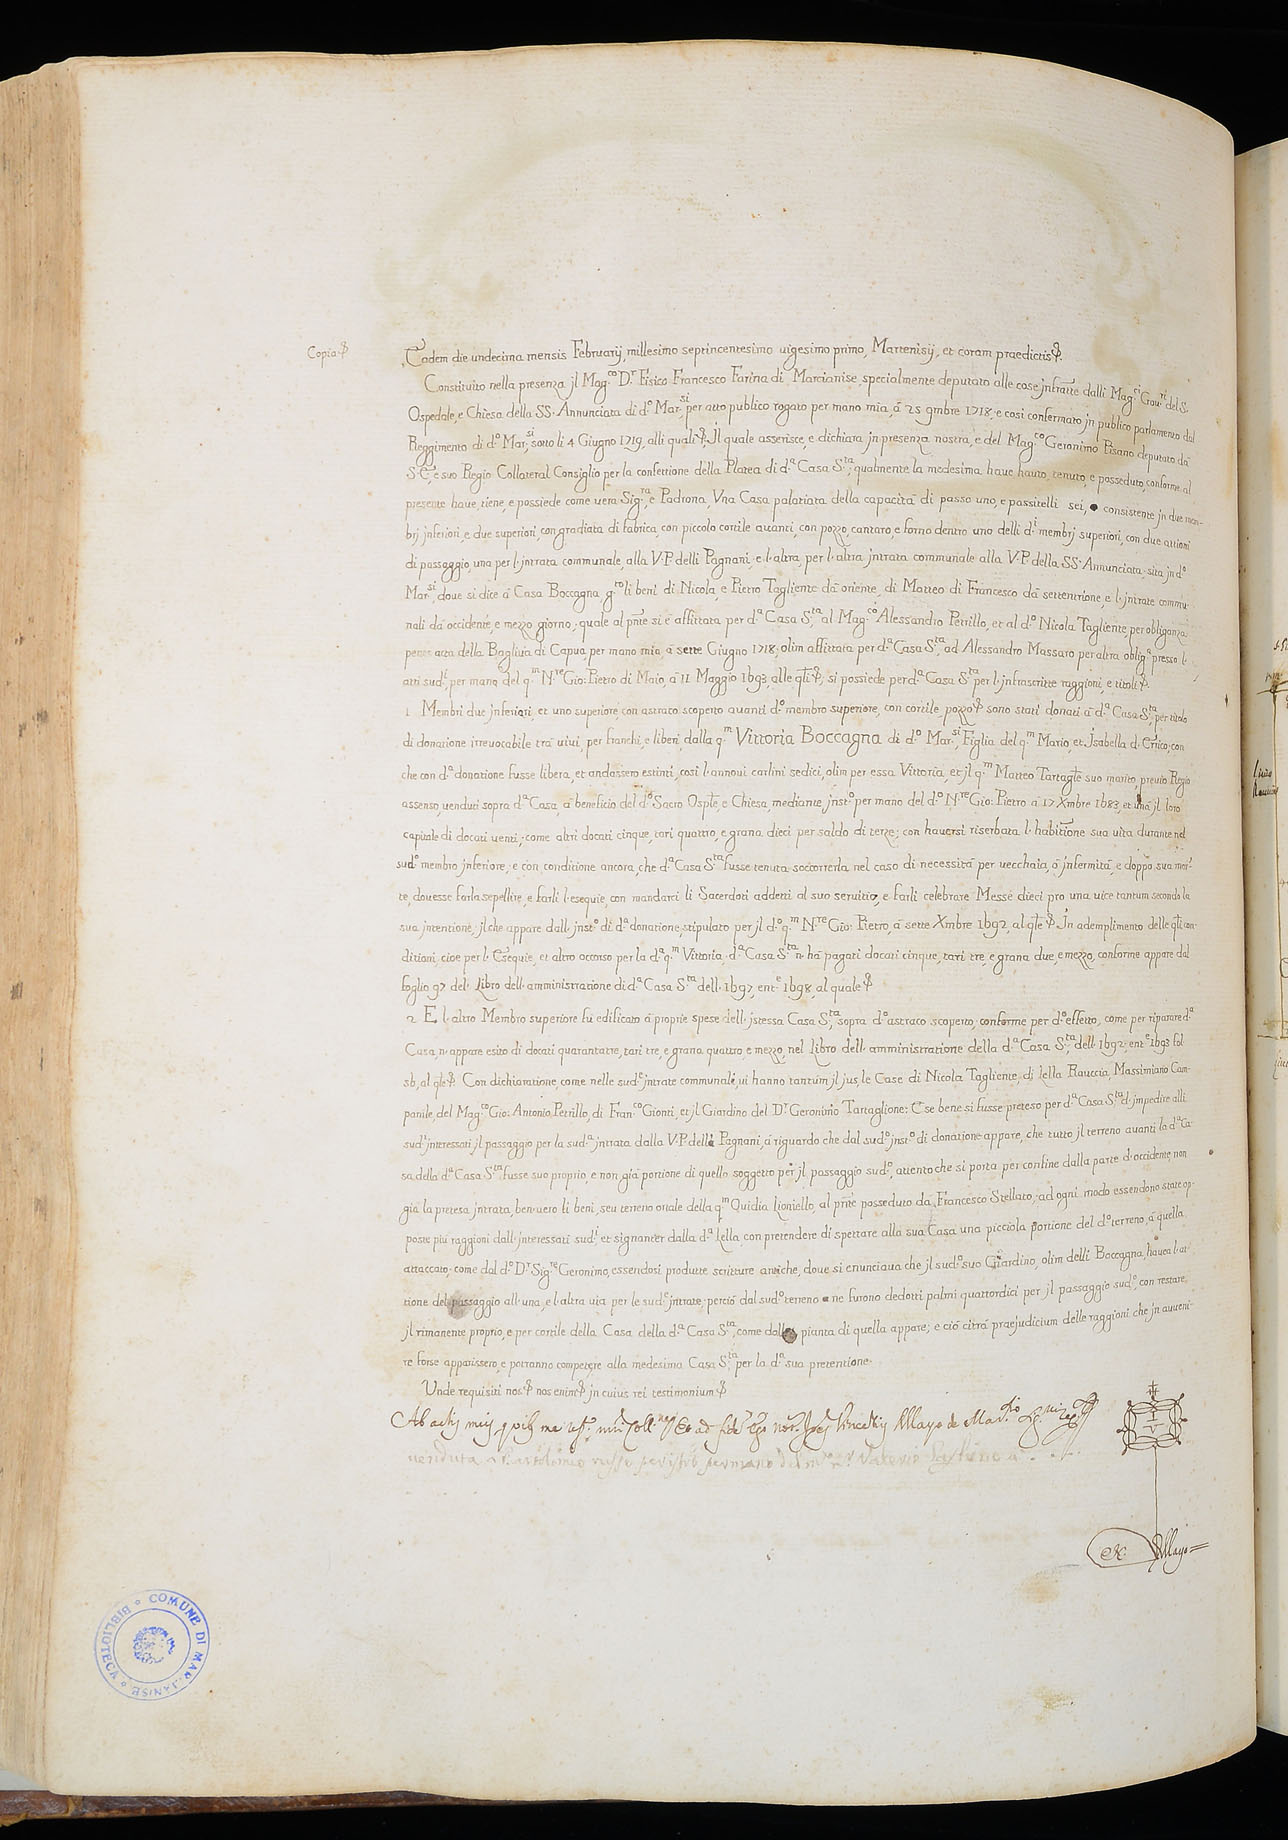 Copia
Eodem die undecima mensis Februarij, millesimo septincentesimo uigesimo primo, Martenisij, et coram praedictis
Constituito nella presenza jl Mag.co D.r Fisico Francesco Farina di Marcianise, specialmente deputato alle cose jnfratte dalli Mag.ci Gou.ri del S.
Ospedale, e Chiesa della SS. Annunciata di d.o Mar.si, per atto publico rogato per mano mia, à 25 9mbre 1718, e così confermato jn publico parlamento dal
Reggimento di d.o Mar.si, sotto li 4 Giugno 1719, alli quali; Jl quale asserisce, e dichiara jn presenza nostra, e del Mag.co Geronimo Pisano deputato dà
S.E., e suo Regio Collateral Consiglio per la confettione della Platea di d.a Casa S.ta, qualmente la medesima haue hauto, tenuto, e posseduto, conforme al
presente haue, tiene, e possiede come uera Sig.ra, e Padrona, Vna Casa palatiata della capacità di passo uno, e passitelli sei, consistente jn due mem-
brj jnferiori, e due superiori, con gradiata di fabrica, con piccolo cortile auanti, con pozzo, cantaro, e forno dentro uno delli d.i membrj superiori, con due attioni
di passaggio, una per l'jntrata communale, alla V.P. delli Pagnani, e l'altra, per l'altra jntrata communale alla V.P. della SS. Annunciata, sita jn d.o
Mar.si, doue si dice à Casa Boccagna, g.to li beni di Nicola, e Pietro Tagliente dà oriente, di Matteo di Francesco dà settentrione, e l'jntrate commu-
nali dà occidente, e mezzo giorno; quale al pnte si è affittata per d.a Casa S.ta al Mag.co Alessandro Petrillo, et al d.o Nicola Tagliente, per obliganza
penes acta della Bagliua di Capua, per mano mia, à sette Giugno 1718; olim affittata per d.a Casa S.ta, ad Alessandro Massaro per altra oblig.a presso l'
atti sud.i, per mano del q.m N.re Gio: Pietro di Maio, à 11 Maggio 1693, alle qli; si possiede per d.a Casa S.ta per l'jnfrascritte raggioni, e titoli
1 Membri due jnferiori, et uno superiore con astraco scoperto auanti d.o membro superiore, con cortile, pozzo sono stati donati à d.a Casa S.ta, per titolo
di donatione irreuocabile trà uiui, per franchi, e liberi, dalla q.m Vittoria Boccagna di d.o Mar.si, Figlia del q.m Mario, et Jsabella d'Errico; con
che con d.a donatione fusse libera, et andassero estinti, così l'annoui carlini sedici, olim per essa Vittoria, et jl q.m Matteo Tartagle suo marito, preuio Regio
assenso, uenduti sopra d.a Casa, à beneficio del d.o Sacro Osple, e Chiesa, mediante jnst.o per mano del d.o N.re Gio: Pietro à 17 Xmbre 1683, et jl loro
capitale di docati uenti; come altri docati cinque, tarì quattro, e grana dieci per saldo di terze; con hauersi riserbata l'habitione sua uita durante nel
sud.o membro jnferiore, e con conditione ancora, che d.a Casa S.ta fusse tenuta soccorrerla nel caso di necessità per uecchiaia, ò jnfermità, e doppo sua mor-
te, douesse farla sepellire, e farli l'esequie, con mandarci li Sacerdoti addetti al suo seruitio, e farli celebrare Messe dieci pro una uice tantum secondo la
sua jntentione, jl che appare dall'jnst.o di d.a donatione, stipulato per jl d.o q.m N.re Gio: Pietro, à sette Xmbre 1692, al qle. Jn adempimento delle qli con-
ditioni, cioe per l'Esequie, et altro occorso per la d.a q.m Vittoria, d.a Casa S.ta n'hà pagati docati cinque, tarì tre, e grana due, e mezzo, conforme appare dal
foglio 97 del Libro dell'amministratione di d.a Casa S.ta dell'1697, ent.e 1698, al quale
2 E l'altro Membro superiore fù edificato à proprie spese dell'jstessa Casa S.ta, sopra d.o astraco scoperto, conforme per d.o effetto, come per riparare d.a
Casa, n'appare esito di docati quarantatre, tarì tre, e grana quattro e mezzo, nel Libro dell'amministratione della d.a Casa S.ta, dell'1692, ent.e 1693 fol
56, al qle. Con dichiaratione, come nelle sud.e jntrate communali, ui hanno tantum jl jus, le Case di Nicola Tagliente, di Lella Rauccia, Massimiano Cam-
panile, del Mag.co Gio: Antonio Petrillo, di Fran.co Gionti, et jl Giardino del D.r Geronimo Tartaglione: E se bene si fusse preteso per d.a Casa S.ta d'impedire alli
sud.i jnteressati, jl passaggio per la sud.a jntrata dalla V.P. delli Pagnani, à riguardo che dal sud.o jnst.o di donatione appare, che tutto jl terreno auanti la d.a Ca-
sa, della d.a Casa S.ta fusse suo proprio, e non già portione di quello soggetto per jl passaggio sud.o, attento che si porta per confine dalla parte d'occidente, non
già la pretesa jntrata, ben uero li beni, seu terreno ortale della q.m Quidia Lioniello, al pnte posseduto da Francesco Stellato; ad ogni modo essendono state op-
poste più raggioni dall'jnteressati sud.i, et signanter dalla d.a Lella, con pretendere di spettare alla sua Casa una picciola portione del d.o terreno, à quella
attaccato; come dal d.o D.r Sig.re Geronimo, essendosi produtte scritture antiche, doue si enunciaua che jl sud.o suo Giardino, olim delli Boccagna, hauea l'at-
tione del passaggio all'una, e l'altra uia per le sud.e jntrate; perciò dal sud.o terreno ne furono dedotti palmi quattordici per jl passaggio sud.o, con restare
jl rimanente proprio, e per cortile della Casa della d.a Casa S.ta, come dalla pianta di quella appare; e ciò citrà praejudicium delle raggioni che jn auueni-
re forse apparissero, e potranno competere alla medesima Casa S.ta per la d.a sua pretentione.
Unde requisiti nos nos enim jn cuius rei testimonium
Ab actis meis, Et ad fidem Ego not.s Vincentius Mayo de Mar.sio
uenduta a Bartolomeo russo per mano del
Mayo
COMUNE DI MARCIANISE
BIBLIOTECA